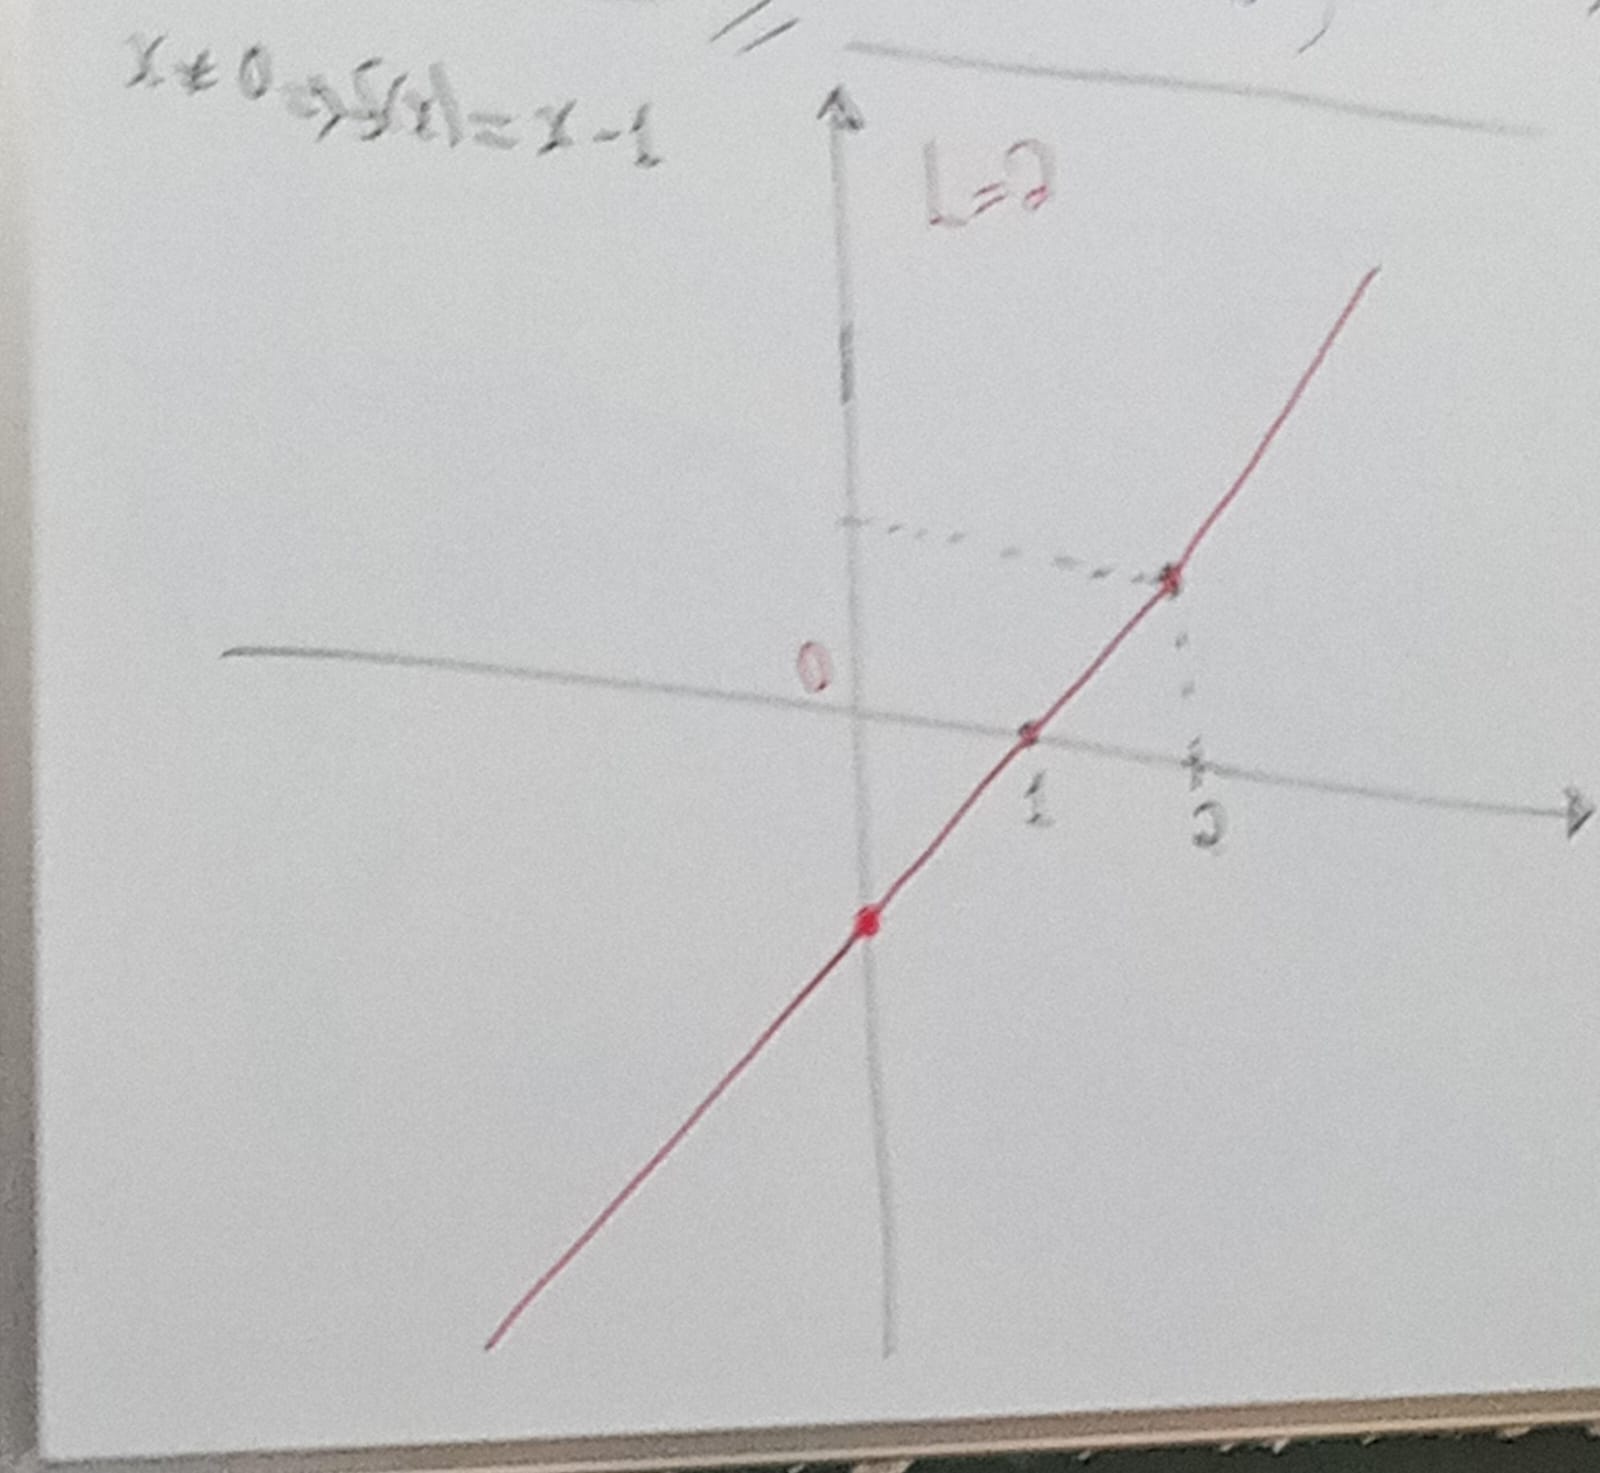 x ≠ 0 => f(x) = x - 1
L = 2
0
1
2